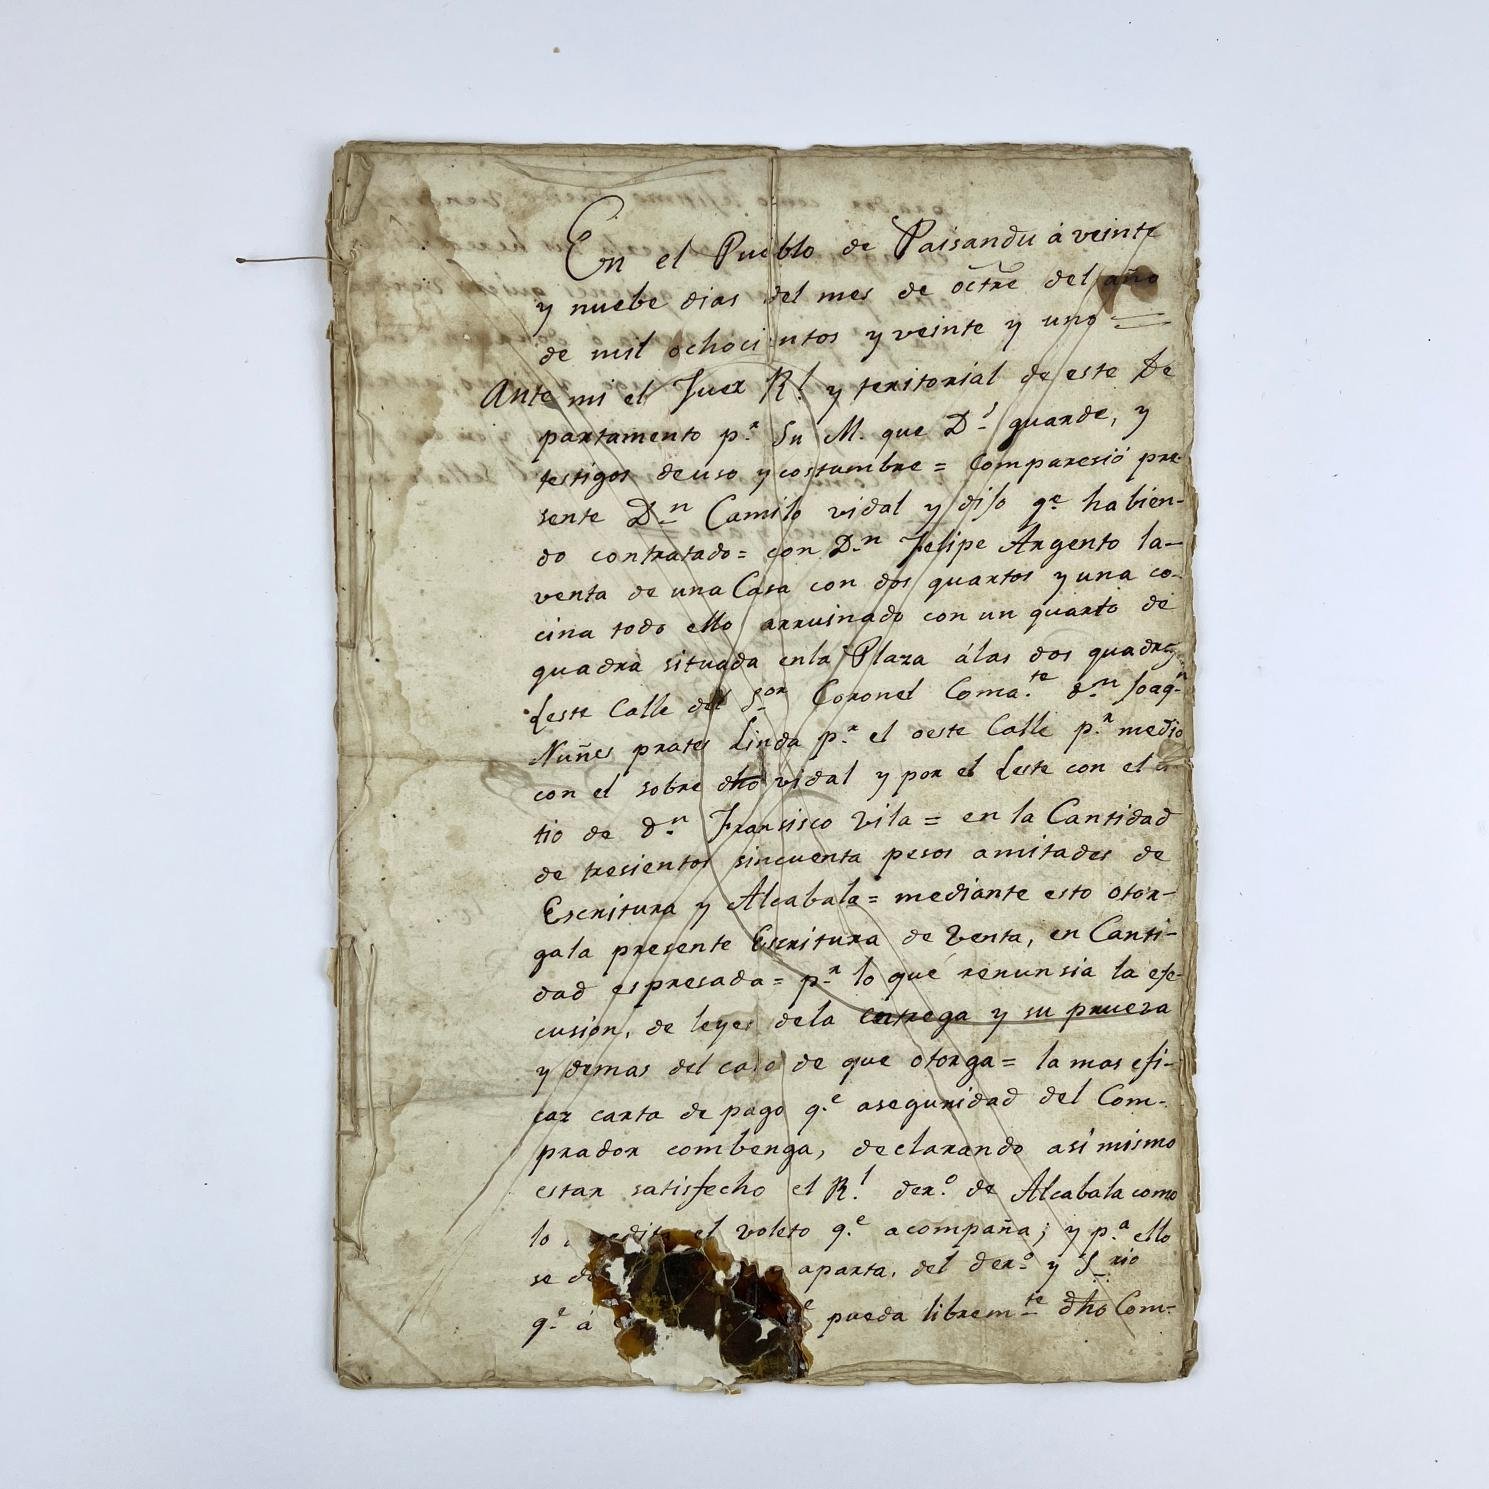 En el Pueblo de Paisandu á veinte
y nuebe dias del mes de octre del año
de mil ochocientos y veinte y uno =
Ante mi el Juez R.l y teritorial de este De
partamento p.r Su M. que D.s guarde, y
testigos de uso y costumbre = Comparesió pre-
sente D.n Camilo vidal y dijo q.e habien-
do contratado = con D.n Felipe Argento la-
venta de una Casa con dos quartos y una co-
cina todo ello arruinado con un quarto de
quadra situada en la Plaza á las dos quadras
Leste Calle del S.or Coronel Coma.te d.n Joaq.n
Nuñes prates Linda p.r el oeste Calle p.r medio
con el sobre dho vidal y por el Leste con el si-
tio de d.n Fransisco Vila = en la Cantidad
de tresientos sincuenta pesos amitades de
Escritura y Alcabala = mediante esto otor-
ga la presente Escritura de Venta, en Canti-
dad espresada = p.r lo que renunsia la eje-
cusion, de leyes de la entrega y su prueva
y demas del caso de que otorga = la mas efi-
caz carta de pago q.e aseguridad del Com-
prador combenga, declarando asi mismo
estar satisfecho el R.l der.o de Alcabala como
lo el voleto q.e acompaña; y p.a ello
se aparta, del der.o y S.rio
q.e á pueda librem.te dho Com-